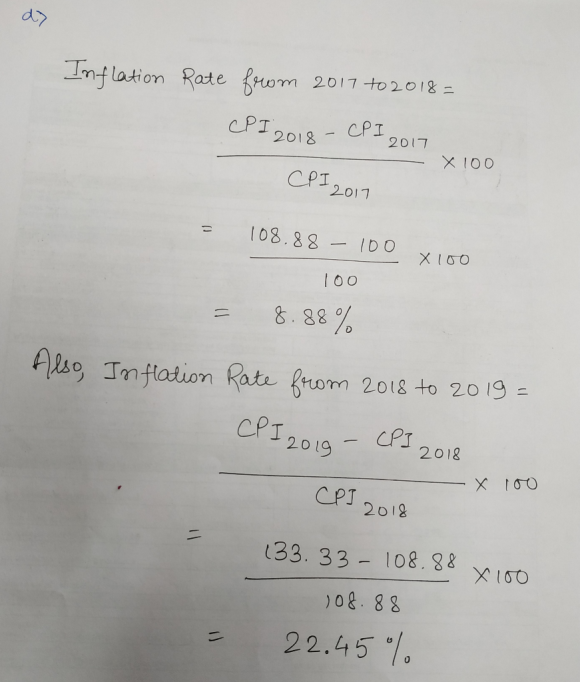 d>
Inflation Rate from 2017 to 2018 =
CPI 2018 - CPI 2017
CPI 2017
× 100
= 108.88 - 100
100
× 100
= 8.88 %
Also, Inflation Rate from 2018 to 2019 =
CPI 2019 - CPI 2018
CPI 2018
× 100
= 133.33 - 108.88
108.88
× 100
= 22.45 %